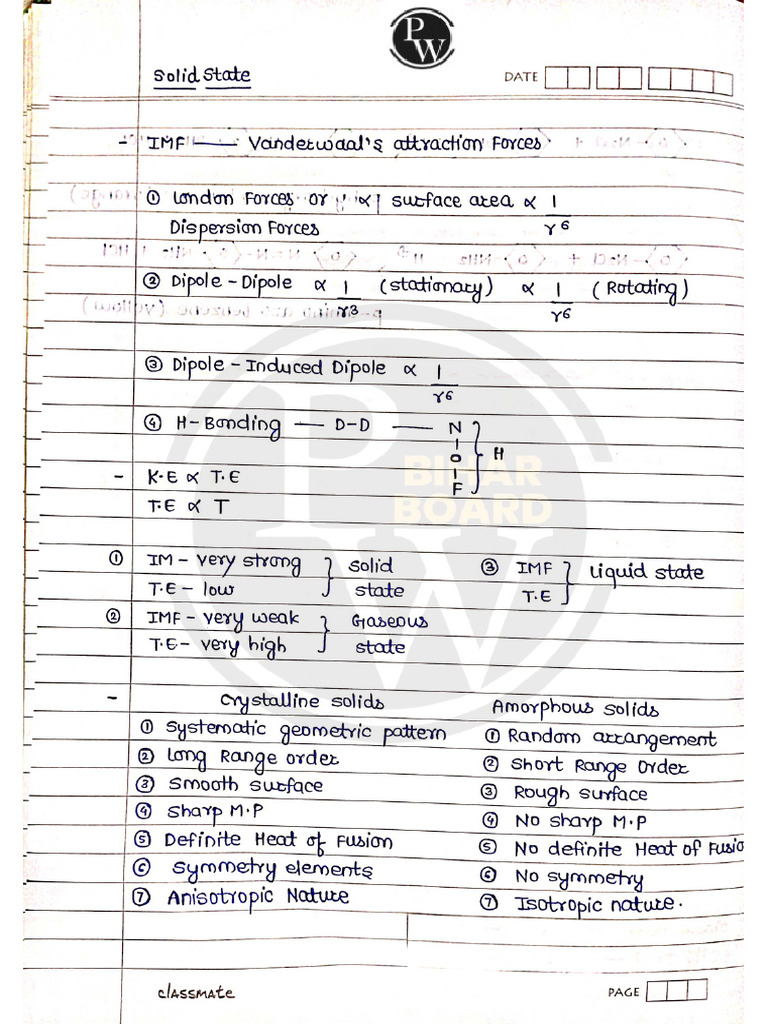 PW
Solid State
DATE
- IMF —— Vanderwaal's attraction Forces
① London Forces or ∝ surface area ∝ 1/r6
Dispersion Forces
② Dipole - Dipole ∝ 1/r3 (stationary) ∝ 1/r6 (Rotating)
③ Dipole - Induced Dipole ∝ 1/r6
④ H-Bonding — D-D — N
O } H
F
BIHAR
BOARD
- K.E ∝ T.E
T.E ∝ T
① IM - very strong } solid
T.E - low state
③ IMF } Liquid state
T.E
② IMF - very weak } Gaseous
T.E - very high state
- Crystalline solids
① Systematic geometric pattern
② Long Range order
③ Smooth surface
④ Sharp M.P
⑤ Definite Heat of Fusion
⑥ Symmetry elements
⑦ Anisotropic Nature
Amorphous solids
① Random arrangement
② Short Range Order
③ Rough surface
④ No sharp M.P
⑤ No definite Heat of Fusio
⑥ No symmetry
⑦ Isotropic nature.
classmate
PAGE